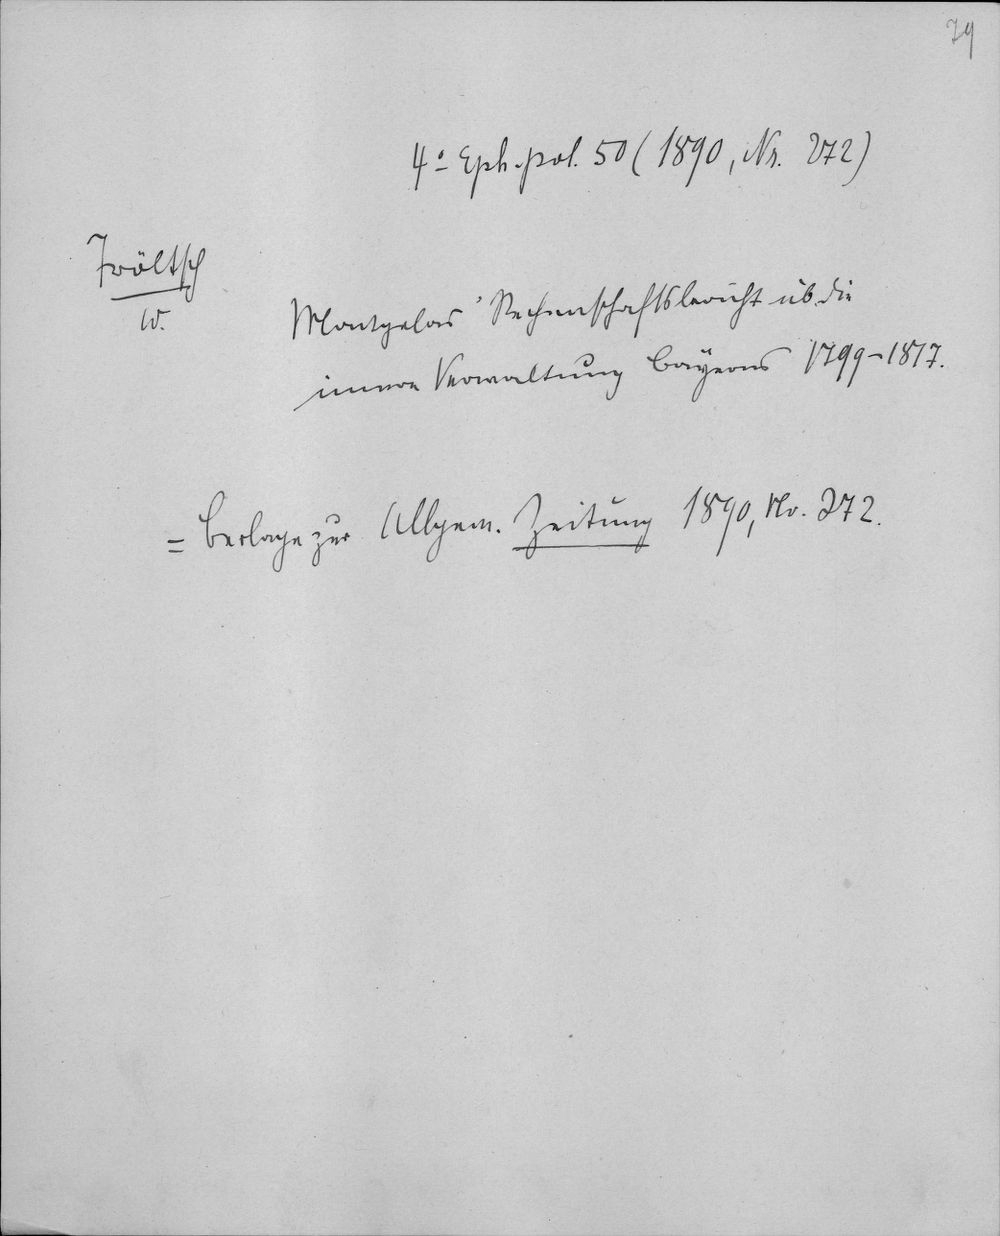 79
4° Eph. pol. 50 (1890, Nr. 272)
Tröltsch
W.
Montgelas' Rechenschaftsbericht üb. die
innere Verwaltung Bayerns 1799-1817.
= Beilage zur Allgem. Zeitung 1890, No. 272.